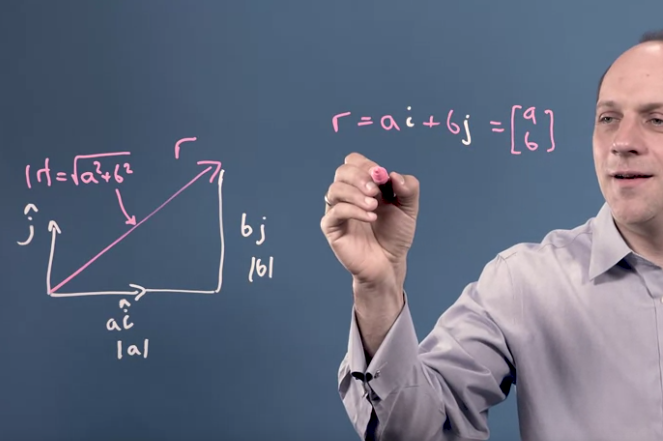 r = ai + bj = [a b]
r
|r| = √a²+b²
ĵ
bj
|b|
aî
|a|